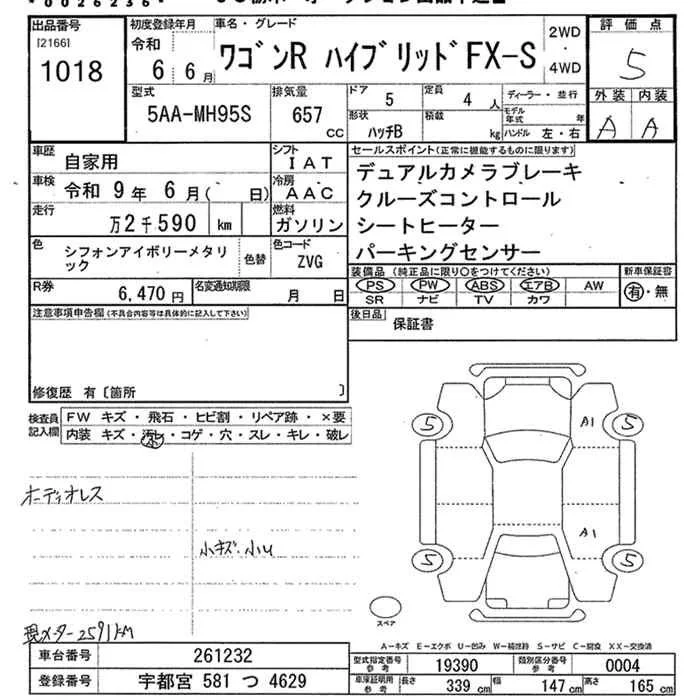 *0026236*
出品番号 [2166] 1018
初度登録年月 令和 6 6月
車名・グレード ワゴンR ハイブリッドFX-S
2WD ・ 4WD
評価点 5
外装 内装
A A
型式 5AA-MH95S
排気量 657 CC
ドア 5 定員 4 人
形状 ハッチB 積載 kg
ディーラー・並行
モデル年式 年
ハンドル 左・右
車歴 自家用
シフト IAT
車検 令和 9年 6月( 日)
冷房 AAC
走行 万2千590 km
燃料 ガソリン
色 シフォンアイボリーメタリック 色替
色コード ZVG
セールスポイント(正常に機能するものに限ります)
デュアルカメラブレーキ
クルーズコントロール
シートヒーター
パーキングセンサー
装備品 (純正品に限り○をつけてください)
PS PW ABS エアB AW
SR ナビ TV カワ
新車保証書
有・無
R券 6,470円 名変通知期限 月 日
後日品 保証書
注意事項申告欄(不具合内容等は具体的に記入して下さい)
修復歴 有〔箇所 〕
検査員記入欄
FW キズ・飛石・ヒビ割・リペア跡・×要
内装 キズ・汚レ・コゲ・穴・スレ・キレ・破レ
小
ボディオレス
小キズ・小U
現メーター2591KM
5 A1 5
A1
5 5
スペア
A-キズ E-エクボ U-凹み W-補修跡 S-サビ C-腐食 XX-交換済
車台番号 261232
登録番号 宇都宮 581 つ 4629
型式指定番号参考 19390 類別区分番号参考 0004
車庫証明用参考 長さ 339 cm 幅 147 cm 高さ 165 cm